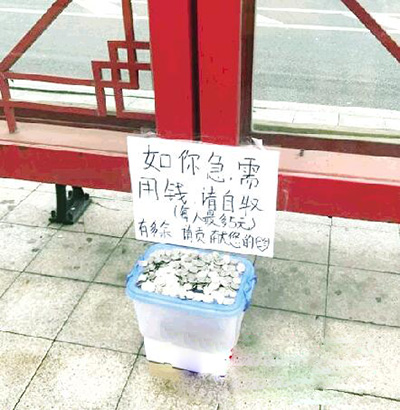 如你急需
用钱.请自取
(每人最多5元)
有多余 请贡献您的